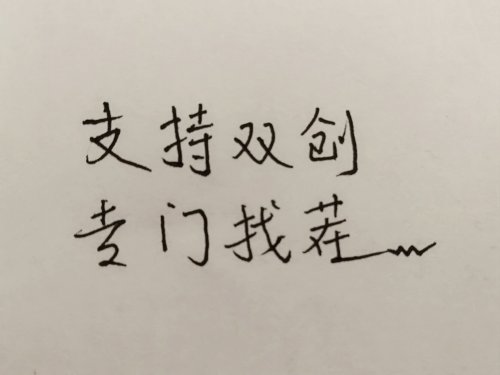 支持双创
专门找茬